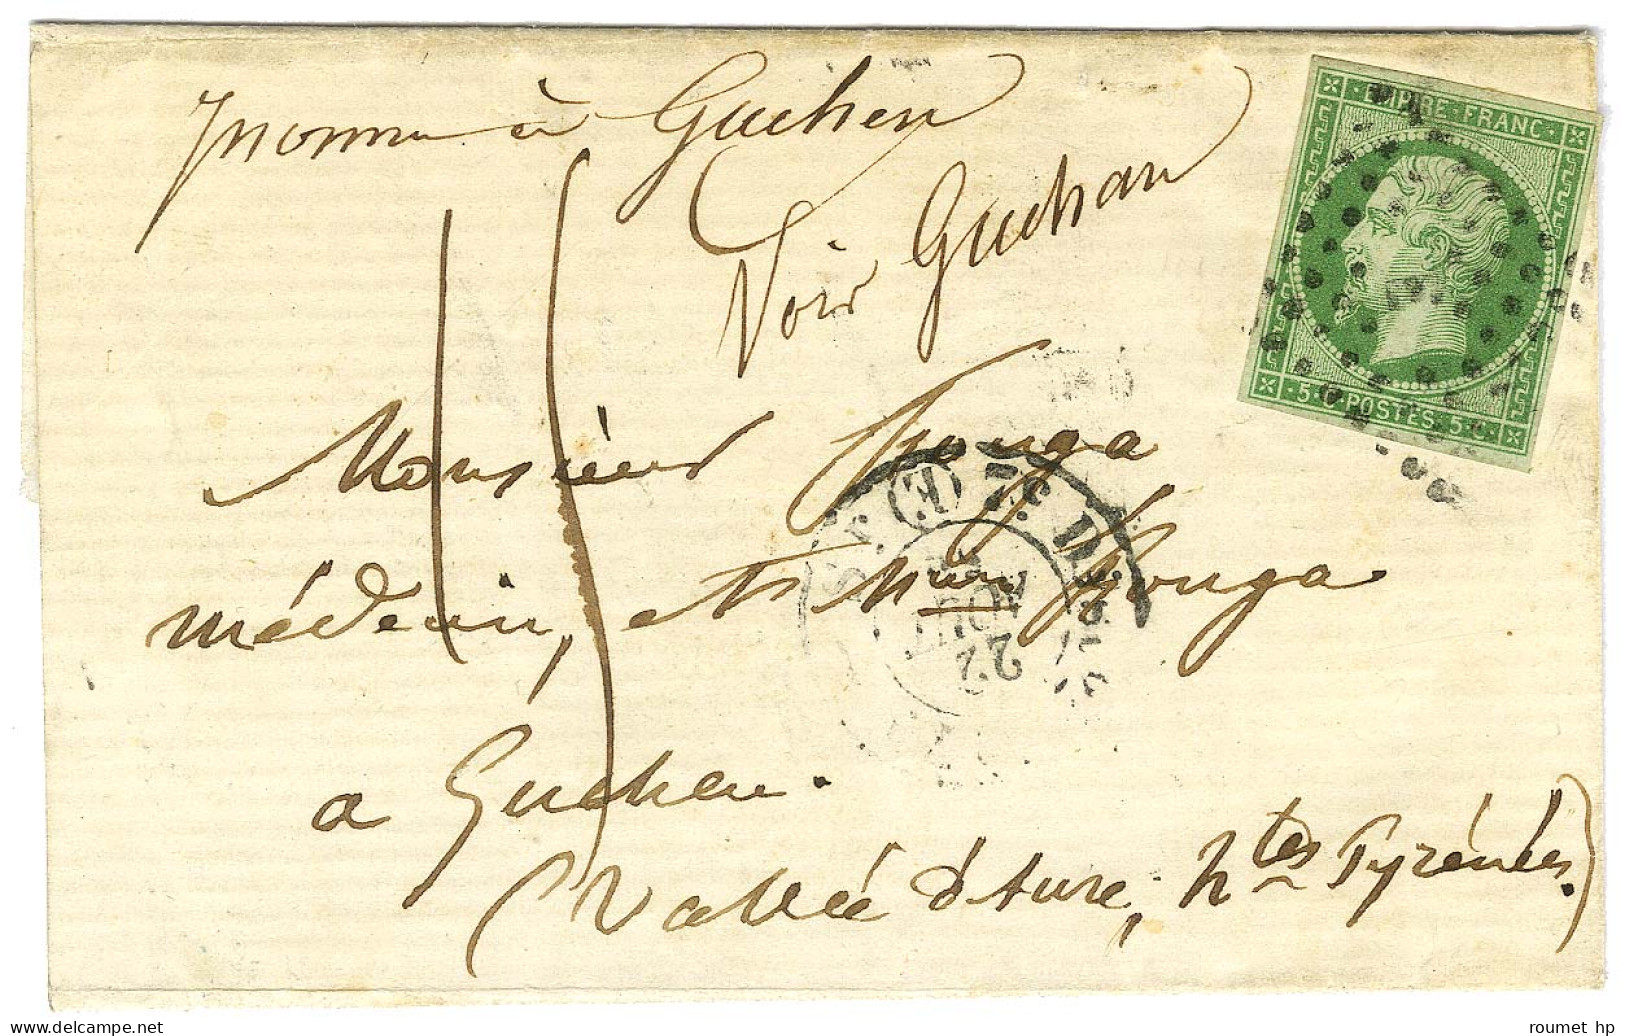 Inconnu à Guchen
Voir Guchan
EMPIRE FRANC
5 C POSTES 5 C
Monsieur Fouga
médecin, et Mme Fouga
22
AOUT
a Guchen.
(Vallée d'Aure, htes Pyrénées.)
roumet hp